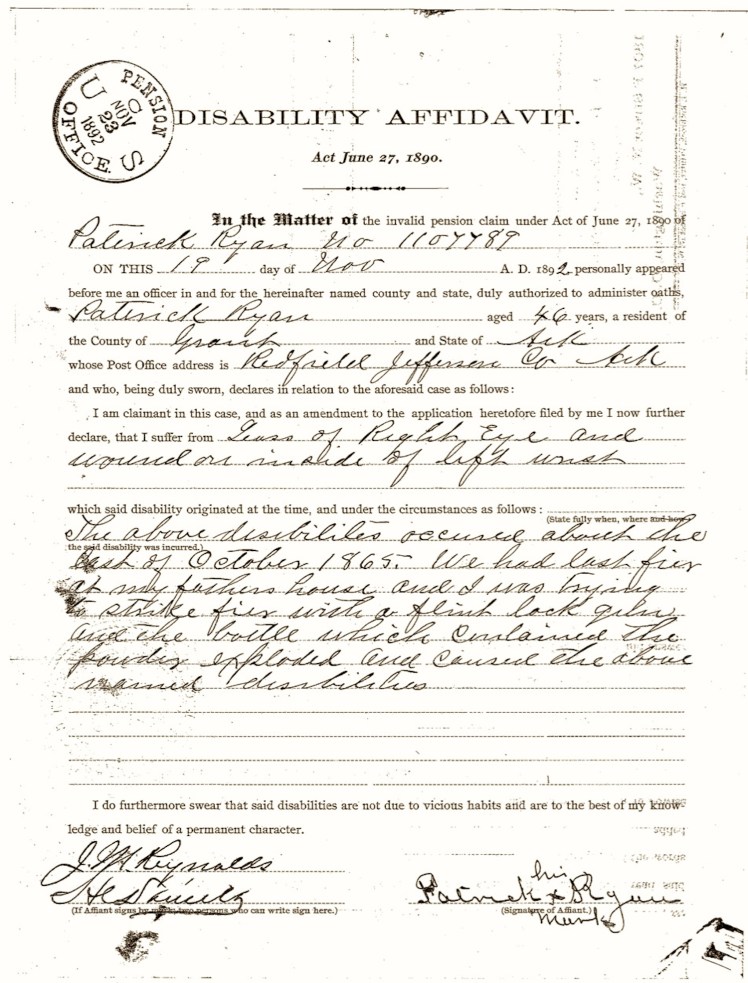 U S PENSION OFFICE.
NOV
23
1892
DISABILITY AFFIDAVIT.
Act June 27, 1890.
In the Matter of the invalid pension claim under Act of June 27, 1890 of
Paterick Ryan No 1107789
ON THIS 19 day of Nov A. D. 1892 personally appeared
before me an officer in and for the hereinafter named county and state, duly authorized to administer oaths,
Paterick Ryan aged 46 years, a resident of
the County of Grant and State of Ark
whose Post Office address is Redfield Jefferson Co Ark
and who, being duly sworn, declares in relation to the aforesaid case as follows:
I am claimant in this case, and as an amendment to the application heretofore filed by me I now further
declare, that I suffer from Loss of Right Eye and
wound on inside of left wrist
which said disability originated at the time, and under the circumstances as follows:
(State fully when, where and how
The above disibilites occured about the
the said disability was incurred.)
Last of October 1865. We had last fier
at my fathers house and I was trying
to strike fier with a flint lock gun
and the bottle which contained the
powder exploded and caused the above
named disibilities
I do furthermore swear that said disabilities are not due to vicious habits and are to the best of my know-
ledge and belief of a permanent character.
J. M. Reynolds
his
Patrick x Ryan
(If Affiant signs by mark, two persons who can write sign here.) (Signature of Affiant.)
mark